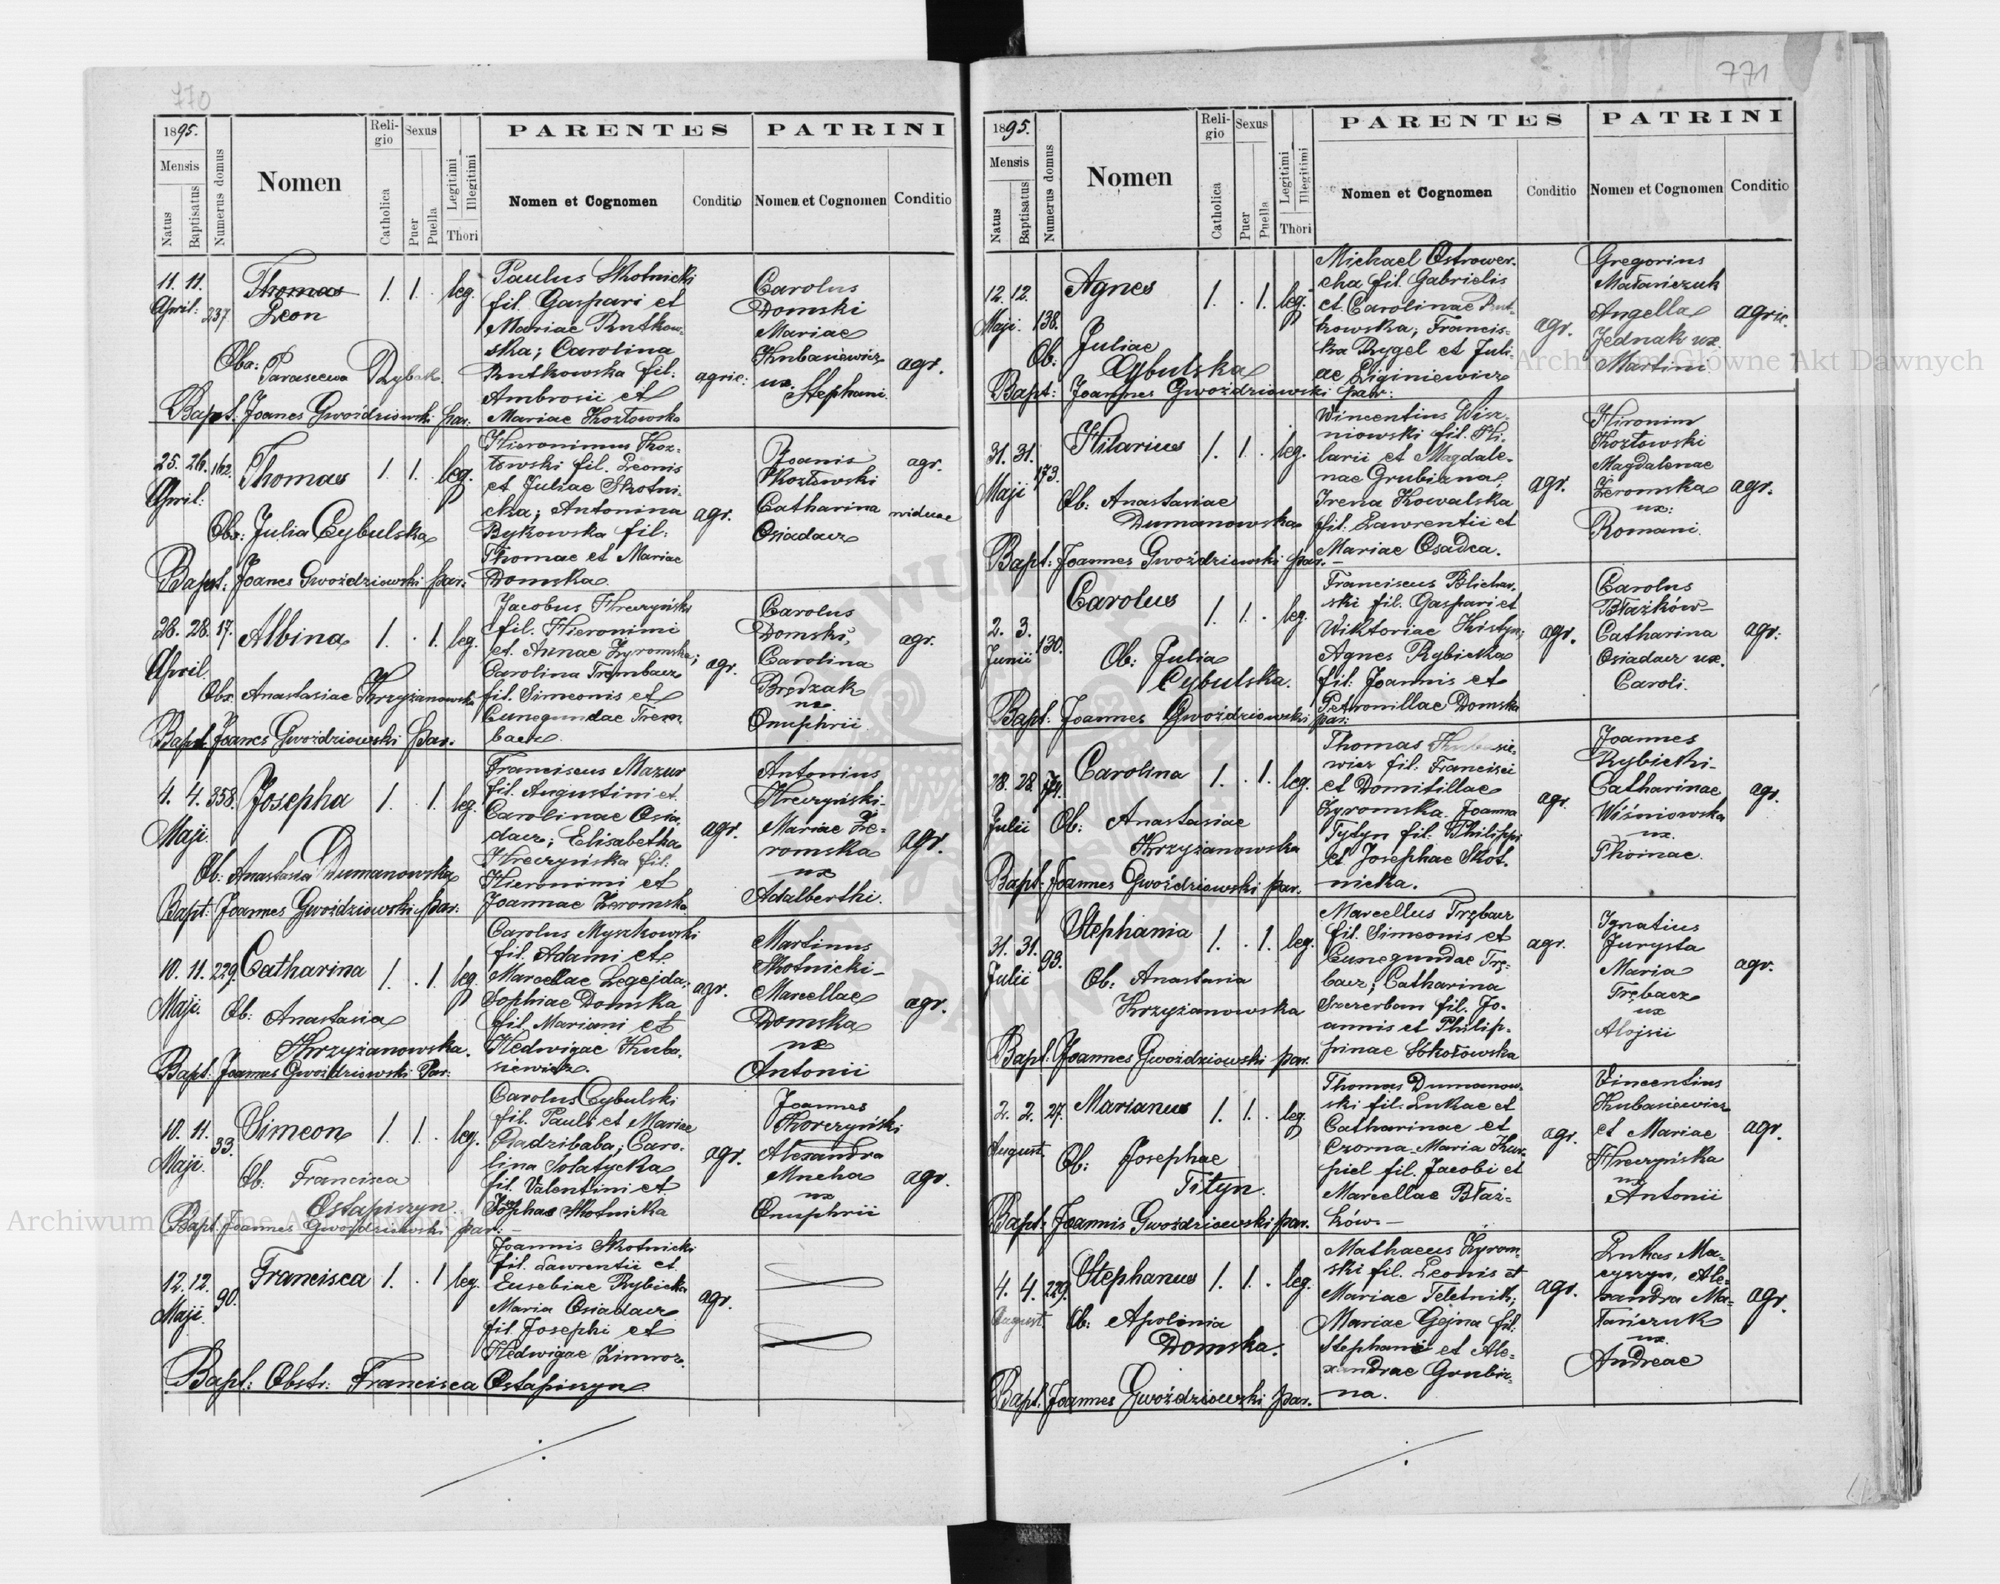 770
1895.
Mensis
Natus
Baptisatus
Numerus domus
Nomen
Religio
Catholica
Sexus
Puer
Puella
Legitimi
Illegitimi
Thori
PARENTES
Nomen et Cognomen
Conditio
PATRINI
Nomen et Cognomen
Conditio
11. 11. April. 237
Thomas
Leon
1. 1. leg.
Paulus Skotnicki
fil. Gaspari et
Mariae Rutkow-
ska; Carolina
Rutkowska fil.
Ambrosii et
Mariae Kozłowska
agric:
Carolus
Domski
Mariae
Kubasiewicz
ux. Stephani
agr.
Obs: Parascewa Rybak
Bapt. Joanes Gwoździowski par:
25. 26. 162. April.
Thomas
1. 1. leg.
Hieronimus Koz-
łowski fil. Leonis
et Juliae Skotni
cka; Antonina
Bykowska fil:
Thomae et Mariae
Domska
agr.
Joanis
Kozłowski
Catharina
Osiadacz
agr.
viduae
Obs: Julia Cybulska
Bapt: Joanes Gwoździowski par:
28. 28. 17. April.
Albina
1. . 1. leg.
Jacobus Hreczyński
fil. Hieronimi
et Annae Zyromska;
Carolina Trembacz
fil. Simeonis et
Cunegundae Trem
bacz.
agr.
Carolus
Domski,
Carolina
Brędzak
ux.
Onuphrii
agr.
Obs. Anastasiae Krzyżanowska
Bapt. Joanes Gwoździowski Par.
4. 4. 358. Maji.
Josepha
1. . 1. leg.
Franciscus Mazur
fil. Augustini et
Carolinae Osia
dacz; Elisabetha
Hreczyńska fil:
Hieronimi et
Joannae Zyromska
agr.
Antonius
Hreczyński-
Mariae Że-
romska
ux
Adalberthi.
agr.
Ob: Anastasia Dumanowska
Bapt: Joannes Gwoździowski par:
10. 11. 229. Maji.
Catharina
1. . 1. leg
Carolus Myszkowski
fil. Adami et
Marcellae Legejda,
Sophiae Domska
fil. Mariani et
Hedwigae Kuba.
siewicz.
agr.
Martinus
Skotnicki-
Marcellae
Domska
ux
Antonii
agr.
Ob: Anastasia
Krzyżanowska.
Bapt: Joannes Gwoździowski Par:
10. 11. 33. Maji.
Simeon
1. 1. . leg.
Carolus Cybulski
fil. Pauli et Mariae
Ladzibaba; Caro-
lina Sołatycka
fil. Valentini et
Sophae Skotnicka
agr.
Joannes
Skorczyński
Alexandra
Mucha
ux
Onuphrii
agr.
Ob: Francisca
Ostapiszyn.
Bapt: Joannes Gwoździowski par:
12. 12. 90. Maji
Francisca
1. . 1 leg.
Joannis Skotnicki
fil. Lawrentii et
Eusebiae Rybicka
Maria Osiadacz
fil. Josephi et
Hedwigae Zimroz.
agr.
Bapt: Obstr: Francisca Ostapiszyn
771
1895.
Mensis
Natus
Baptisatus
Numerus domus
Nomen
Religio
Catholica
Sexus
Puer
Puella
Legitimi
Illegitimi
Thori
PARENTES
Nomen et Cognomen
Conditio
PATRINI
Nomen et Cognomen
Conditio
12. 12. 138. Maji.
Agnes
1. . 1. leg.
Michael Ostrower-
cha fil. Gabrielis
et Carolinae Rut-
kowska; Francis-
ka Rygel et Juli-
ae Liginiewicz
agr.
Gregorius
Matańczuk
Angella
Jednak ux.
Martini
agric.
Ob: Juliae
Cybulska
Bapt: Joannes Gwoździowski par:
31. 31. 173. Maji
Hilarius
1. 1. . leg.
Wincentius Wisz-
niowski fil. Hi-
larii et Magdale-
nae Grubizna,
Irena Kowalska
fil. Lawrentii et
Mariae Osadca.
agr.
Hironim
Kozłowski
Magdalenae
Żeromska
ux:
Romani.
agr.
Ob: Anastasiae
Dumanowska
Bapt: Joannes Gwoździowski par.
2. 3. 130. Junii
Carolus
1. 1. . leg.
Franciscus Blichar-
ski fil. Gaspari et
Wiktoriae Kistyn;
Agnes Rybicka
fil. Joannis et
Petronillae Domska
agr.
Carolus
Błażków-
Catharina
Osiadacz ux.
Caroli.
agr:
Ob: Julia
Cybulska.
Bapt: Joannes Gwoździowski par:
28. 28. 74. Julii
Carolina
1. . 1. leg.
Thomas Kubasie-
wicz fil. Francisci
et Domitillae
Zyromska Joanna
Tytyn fil. Philippi
et Josephae Skot.
nicka.
agr.
Joannes
Rybicki-
Catharinae
Wiśniowska
ux.
Thomae.
agr.
Ob: Anastasiae
Krzyżanowska
Bapt: Joannes Gwoździowski par.
31. 31. 93. Julii
Stephania
1. . 1. leg.
Marcellus Trębacz
fil. Simeonis et
Cunegundae Trę-
bacz; Catharina
Szczerban fil. Jo-
annis et Philip-
pinae Sokołowska
agr.
Ignatius
Jurysta
Maria
Trębacz
ux
Alojsii
agr.
Ob: Anastasia
Krzyżanowska
Bapt: Joannes Gwoździowski par.
2. 2. 27. August.
Marianus
1. 1. . leg
Thomas Dumanow-
ski fil. Lukae et
Catharinae et
Czorna-Maria Kur-
piel fil. Jacobi et
Marcellae Błaż-
ków-
agr.
Vincentius
Kubasiewicz
et Mariae
Hreczyńska
ux
Antonii
agr.
Ob: Josephae
Tityn.
Bapt: Joannis Gwoździowski par.
4. 4. 229. August.
Stephanus
1. 1. . leg.
Mathaeus Zyrom-
ski fil. Leonis et
Mariae Teletnik;
Mariae Gejna fil:
Stephani et Ale-
xandrae Grubiz-
na.
agr.
Lukas Ma-
cyszyn, Ale-
xandra Ma-
tańczuk
ux.
Andreae
agr.
Ob: Apolonia
Domska.
Bapt. Joannes Gwoździowski par.
Archiwum Główne Akt Dawnych
Archiwum Główne Akt Dawnych